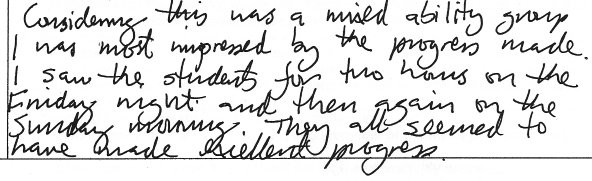 Considering this was a mixed ability group
I was most impressed by the progress made.
I saw the students for two hours on the
Friday night and then again on the
Sunday morning. They all seemed to
have made excellent progress.